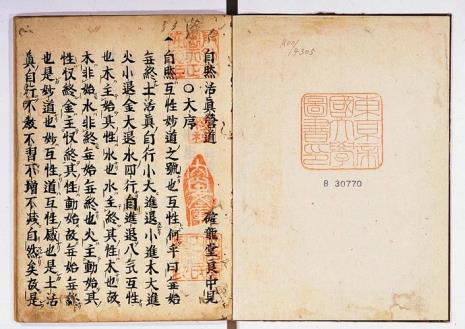 14305
東京帝
國大學
圖書印
B 30770
自然活眞營道 確龍堂良中見
〇大序
自然互性妙道之號也互性何乎曰無始
無終土活眞自行小大進退小進木大進
火小退金大退水四行自進退八气互性
也木主始其性水也水主終其性木也故
木非始水非終無始無終也火主動始其
性收終金主收終其性動始故無始無終
也是妙道也妙互性道互性感也是土活
眞自行不教不習不增不減自然矣故是